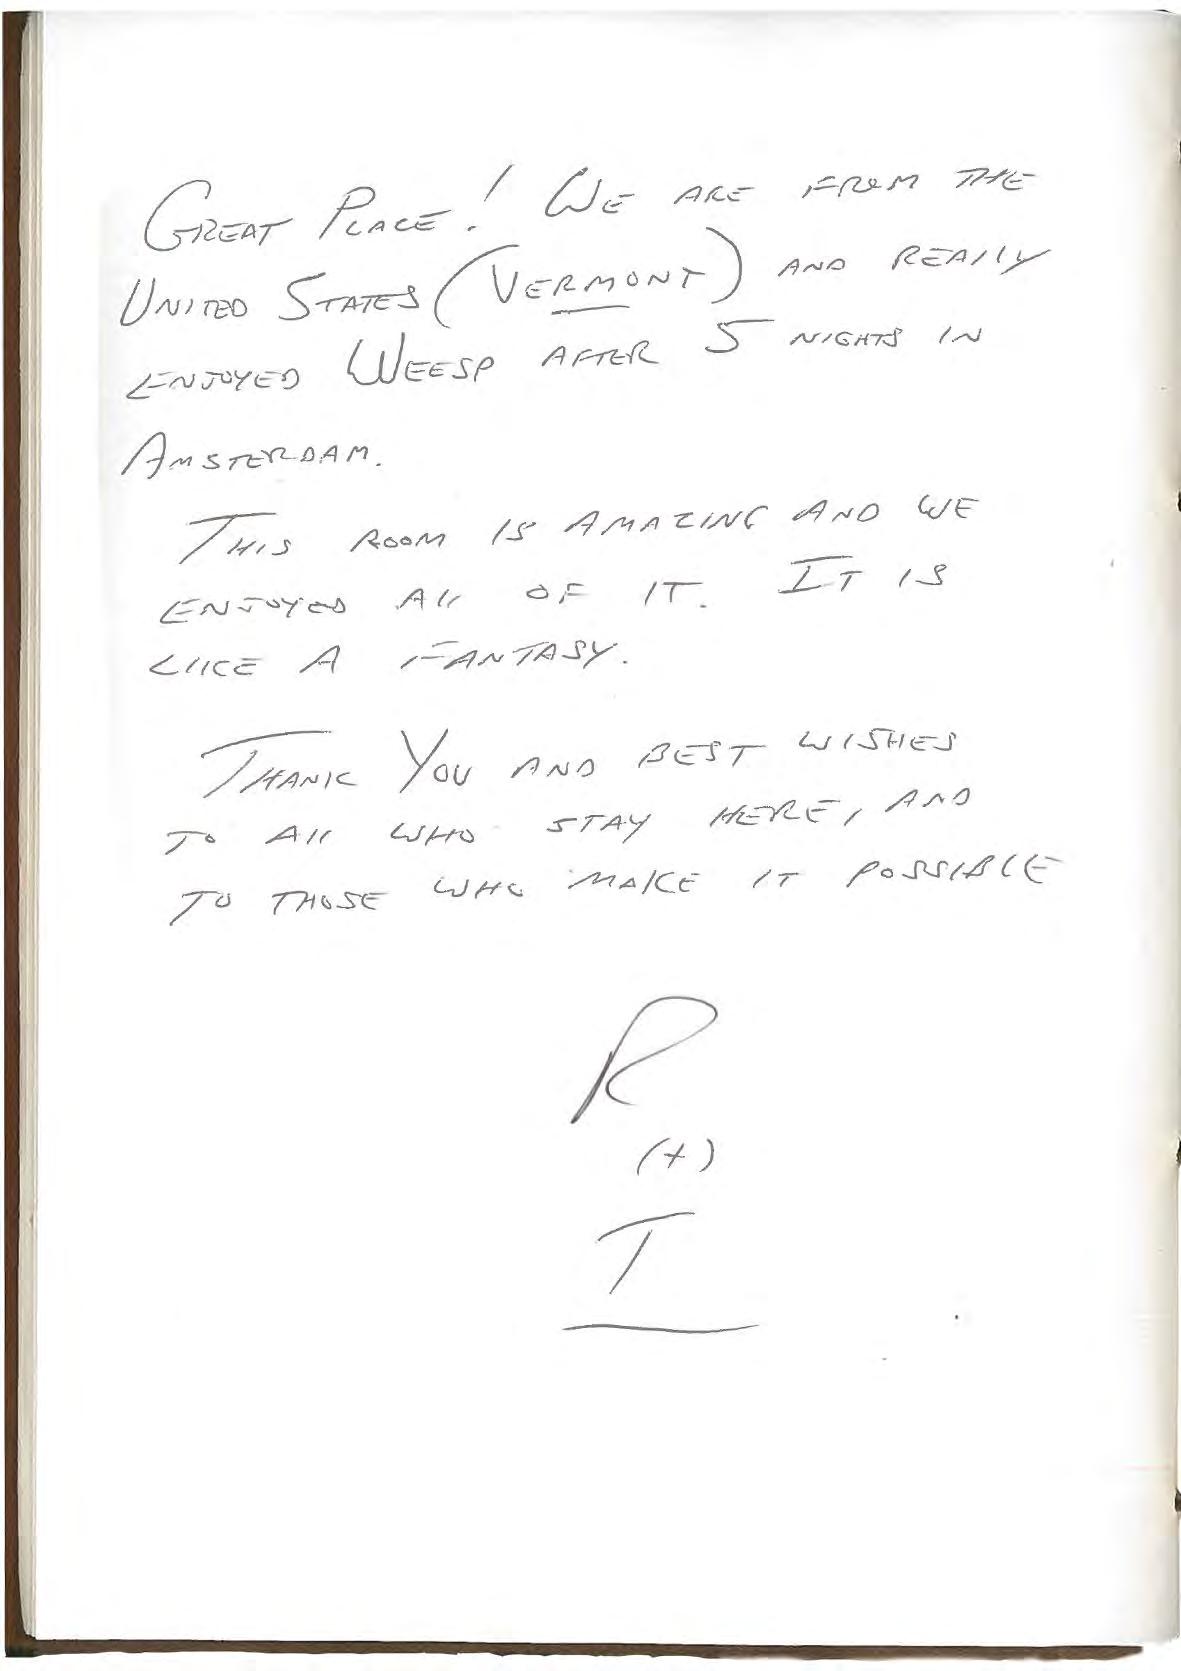 GREAT PLACE! WE ARE FROM THE
UNITED STATES (VERMONT) AND REALLY
ENJOYED WEESP AFTER 5 NIGHTS IN
AMSTERDAM.
THIS ROOM IS AMAZING AND WE
ENJOYED ALL OF IT. IT IS
LIKE A FANTASY.
THANK YOU AND BEST WISHES
TO ALL WHO STAY HERE, AND
TO THOSE WHO MAKE IT POSSIBLE
R
(+)
T